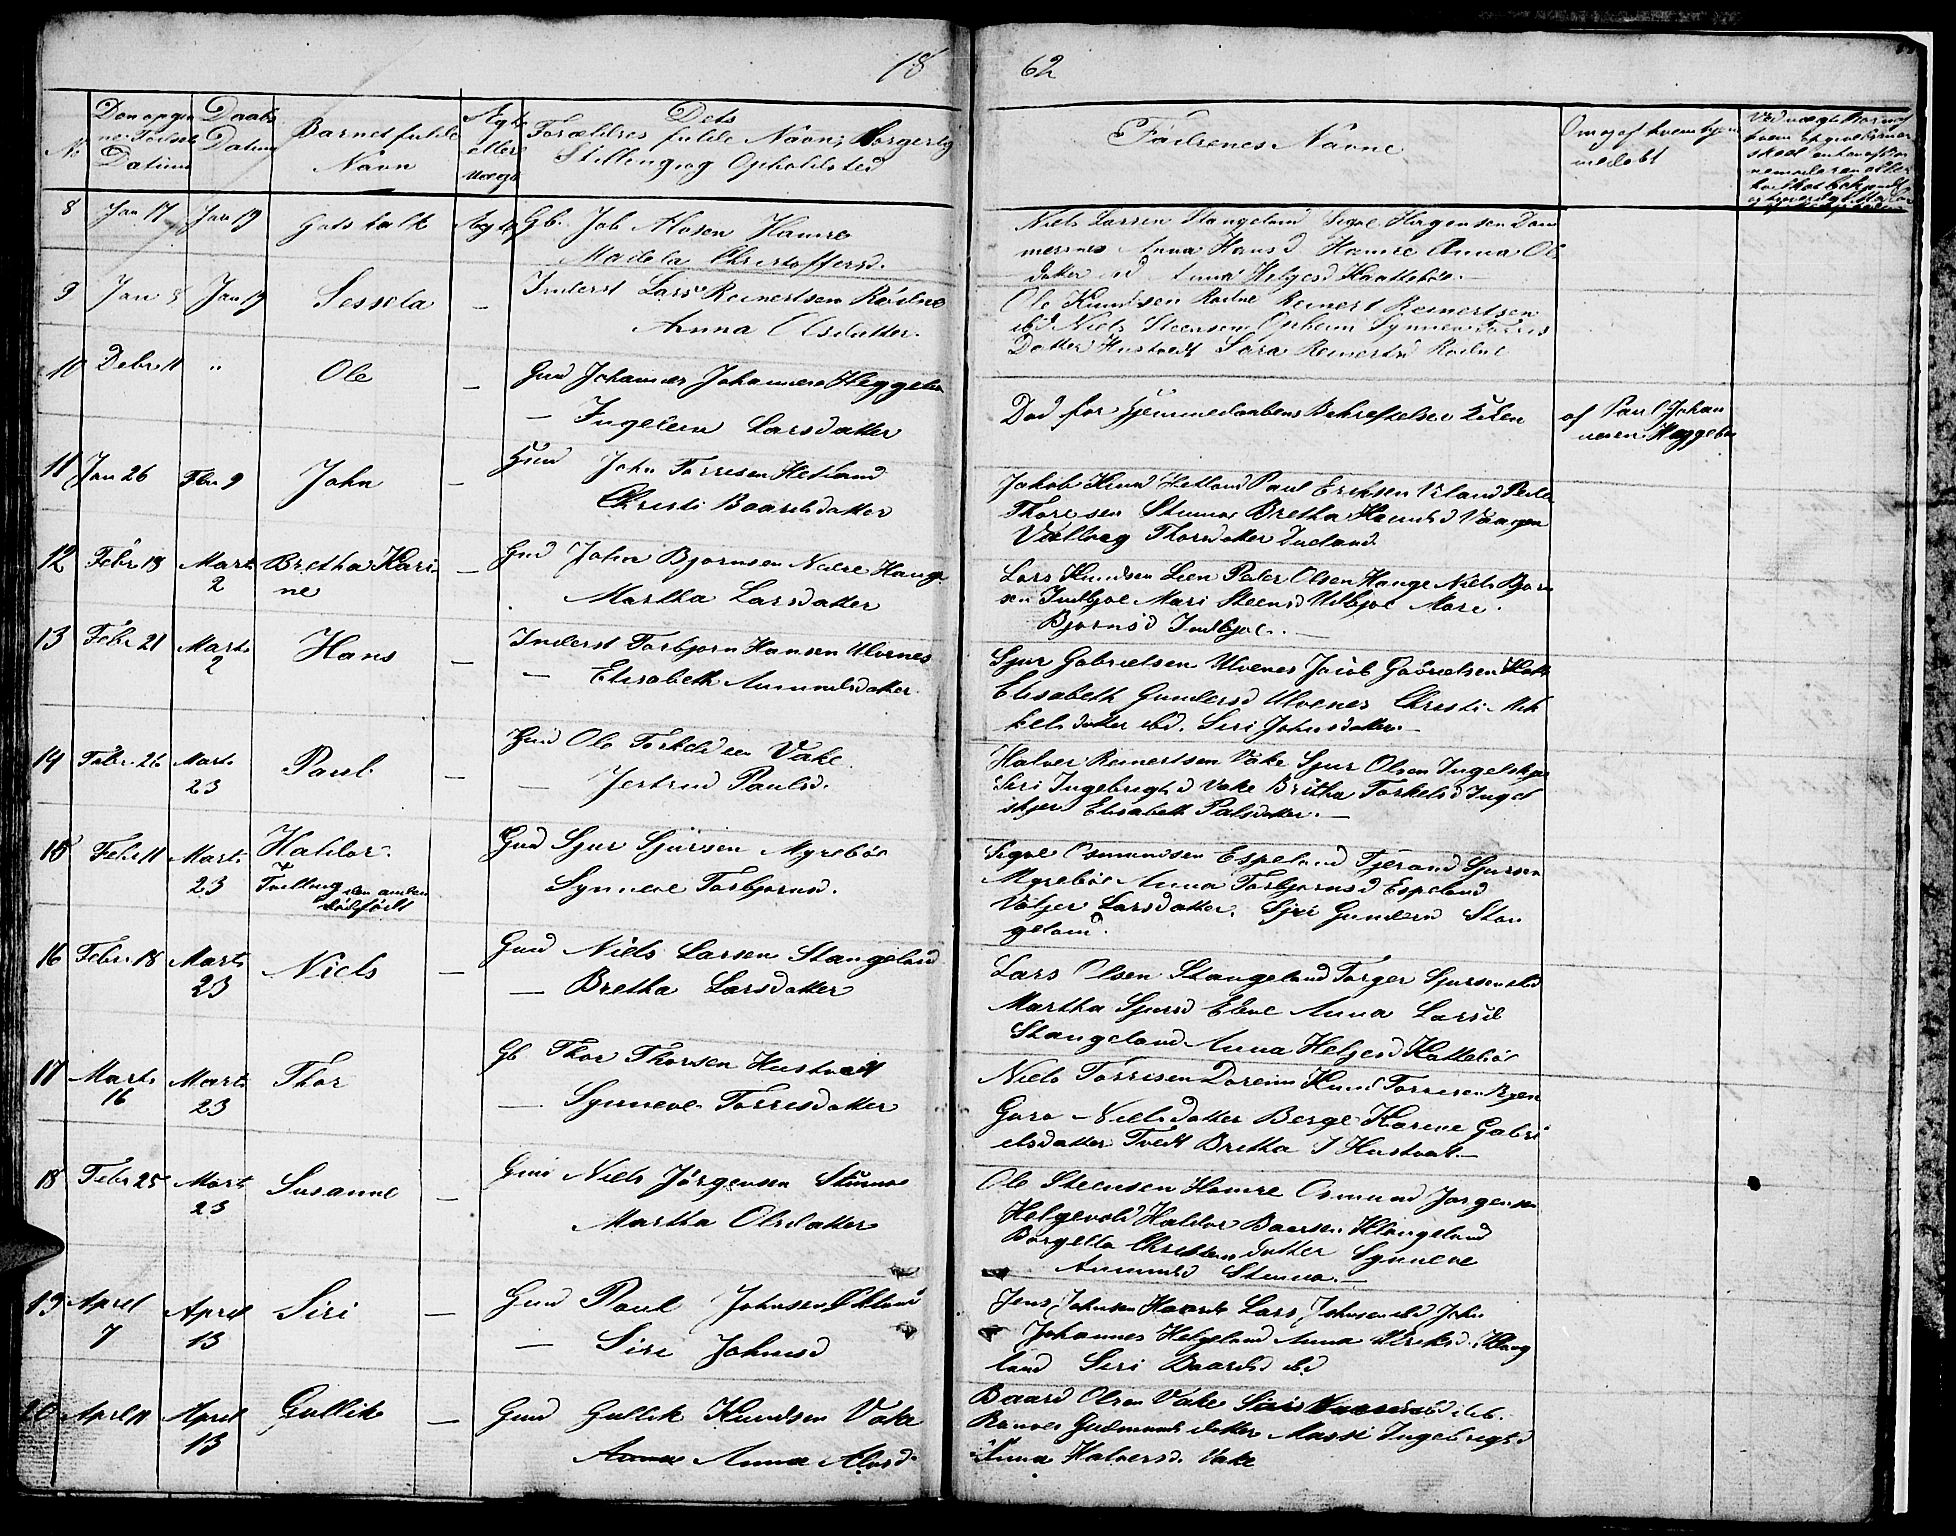 18 62
No
Den opgiv
ne Fødsels
Datum
Daabs
Datum
Barnets fulde
Navn
Ægte
eller
Uægte
Dets
Forældres fulde Navn, Borgerlig
Stilling og Opholdsted
Faddernes Navne
Om og af hvem hjem
medøbt
8 Jan 17 Jan 19 Gotskalk Ægte Gb. Job Aslosen Hamre
Madela Christoffersd.
Niels Larsen Stangeland Sigve Hagensen Dom
mersnes Anna Hansd Hamre Anna Ols
datter ibd Anna Helgesd Hattebøe.
9 Jan 8 Jan 19 Sessela — Inderst Lars Reinertsen Rødne
Anna Olsdatter.
Ole Knudsen Rødne Reinert Reinertsen
ibd Niels Steensen Opheim Synneve Torris
Datter Hustvedt Sara Reinertsd Rødne
10 Debr 11 " Ole — Gmd Johannes Johannesen Heggebø
— Ingeleiv Larsdatter
Død før Hjemmedaabens Bekræftelse i Kirken
af Paul Johan
nesen Heggebø
11 Jan 26 Febr 9 John — Gmd John Torrisen Hetland
Christi Baardsdatter
Jakob Knud Hetland Paul Eriksen Viland Peder
Thoresen Stumoe Bretha Haavardsd Vaagen
Valborg Thorsdatter
12 Febr 13 Marts 2 Bretha Kari
ne — Gmd John Bjornsen Nedre Hauge
Martha Larsdatter
Lars Knudsen Lien Peder Olsen Hauge Niels Bjorn
sen Indbjoe Mari Steensd Utbjoe Mari
Bjornsd Indbjoe. —
13 Febr 21 Marts 2 Hans — Inderst Torbjorn Hansen Ulvenes
— Elisabeth Amundsdatter.
Sjur Gabrielsen Ulvenes Jacob Gabrielsen
Elisabeth Gundersd Ulvenes Christi Mik
kelsdatter ibd. Siri Johnsdatter. —
14 Febr. 26 Marts 23 Paul — Gmd Ole Torkeldsen Vake
— Jertrud Paulsd.
Halver Reinertsen Vake Sjur Olsen Ingelskjer
Siri Ingebrigtsd Vake Britha Torkelsd Ingel
skjer Elisabeth Palsdatter. —
15 Febr 11 Marts 23 Haldor.
Tvilling den anden
dødfødt
Gmd Sjur Sjursen Myrebøe
Synneve Torbjornsd.
Sigve Osmundsen Espeland Tjerand Sjursen
Myrebøe Anna Torbjornsd Espeland
Larsdatter. Siri Gundersd Stan
geland.
16 Febr 18 Marts 23 Niels — Gmd Niels Larsen Stangeland
— Bretha Larsdatter
Lars Olsen Stangeland Torger Sjursen ibd
Martha Sjursd Anna Larsd
Stangeland Anna Helgesd Hattebøe
17 Marts 16 Marts 23 Thor Gb Thor Thorsen Hustvedt
— Synneve Torrisdatter
Niels Torrisen Doreim Knud Torrisen
Guro Nielsdatter Berge Karine Gabri
elsdatter Tvedt Bretha J Hustvedt. —
18 Febr 25 Marts 23 Susanne — Gmd Niels Jørgensen Stumoe
Martha Olsdatter
Ole Steensen Hamre Osmund Jorgensen
Helgevold Haldor Baarsen Klungeland
Borgella Christensdatter Synneve
Amundsd Stumoe. —
19 April 7 April 13 Siri — Gmd Paul Johnsen Økland
— Siri Johnsd
Jens Johnsen Lars Johnsen ibd John
Johannes Helgeland Anna Eriksd Klung
land Siri Baardsd ibd
20 April 11 April 13 Gullik — Gmd Gullik Knudsen Vake
Anna Anna Alvsd.
Baard Olsen Vake Siri ibd.
Ranvei Gudmundsdatter Massi Ingebrigtsd
Anna Halversd. Vake